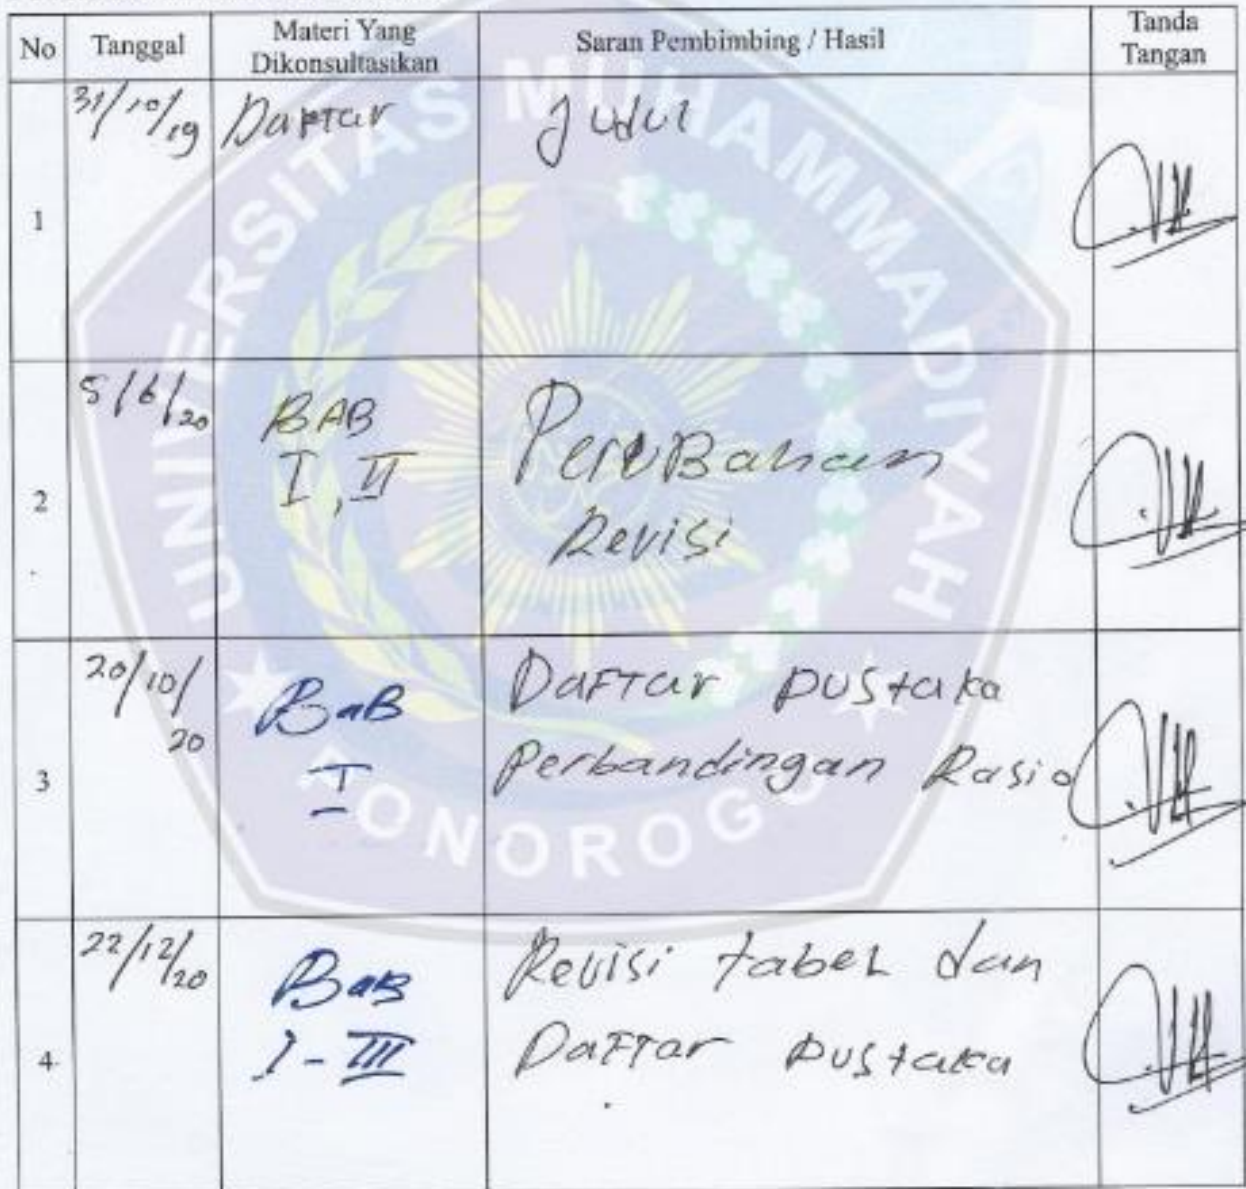 No Tanggal Materi Yang Dikonsultasikan Saran Pembimbing / Hasil Tanda Tangan
1 31/10/19 Daftar Judul
2 5/6/20 BAB I, II Perubahan Revisi
3 20/10/20 BaB I Daftar pustaka
Perbandingan Rasio
4 22/12/20 BaB I - III Revisi tabel dan
Daftar pustaka
UNIVERSITAS MUHAMMADIYAH
PONOROGO